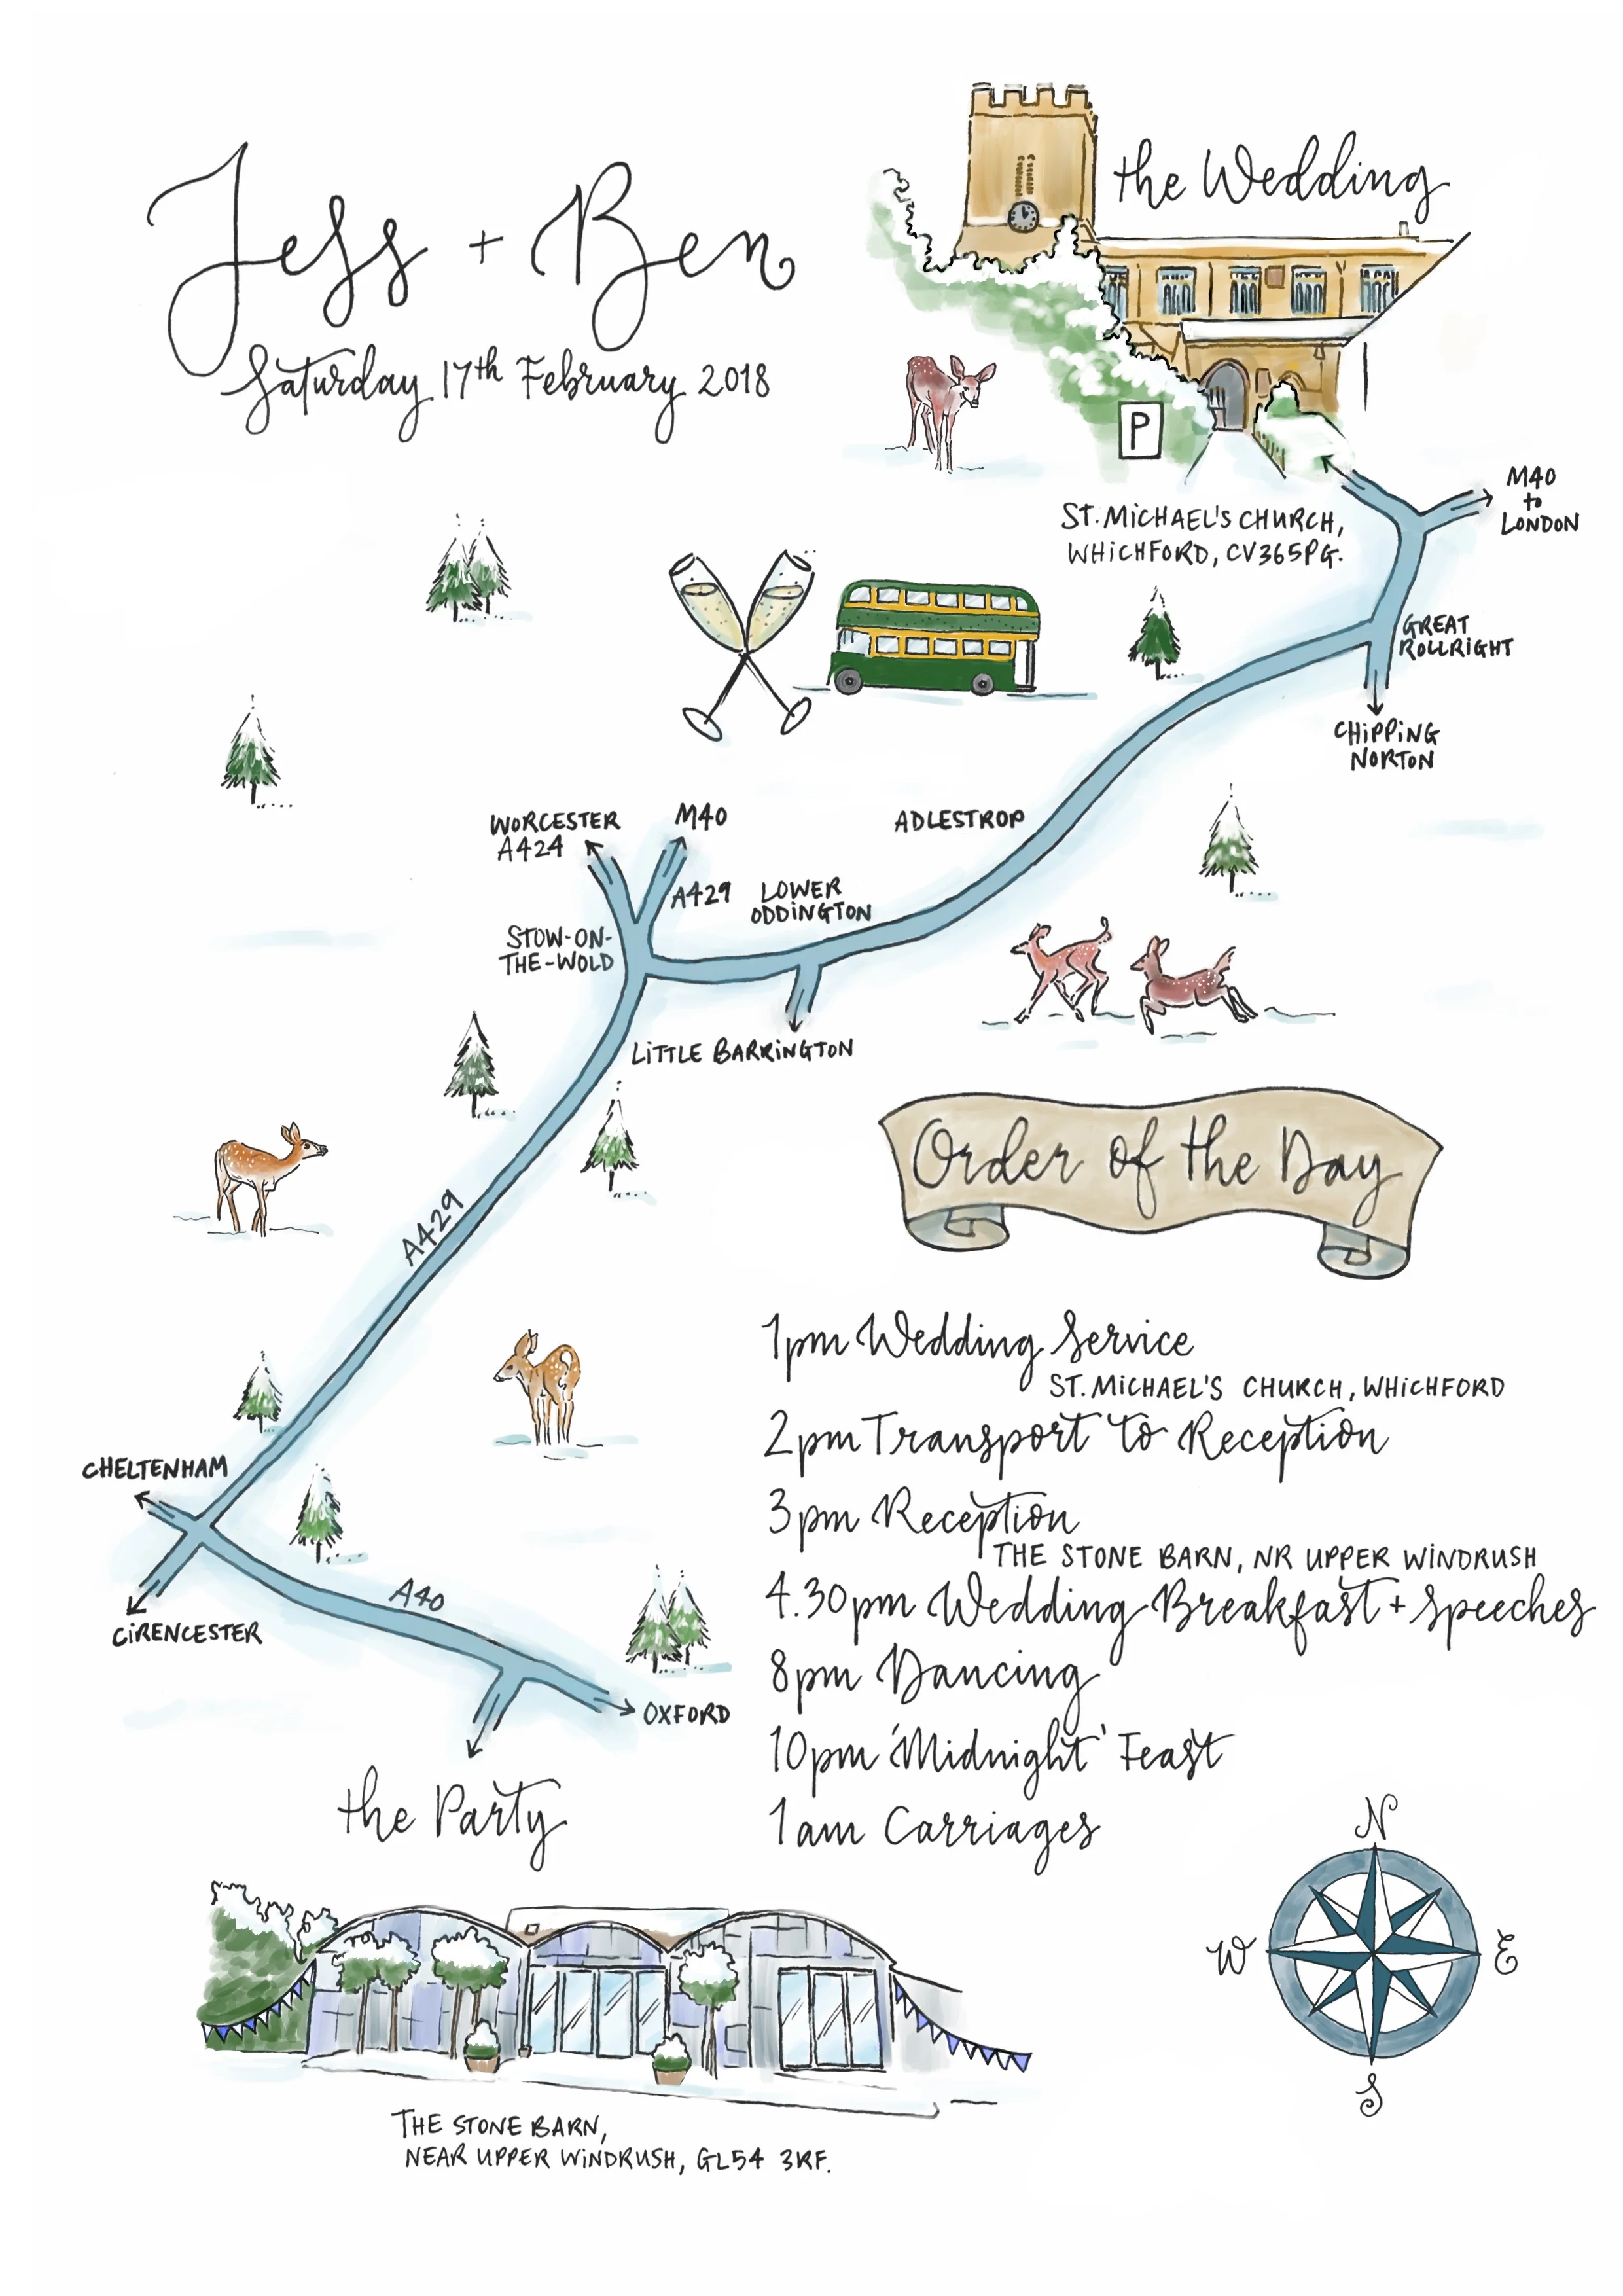 Jess + Ben
Saturday 17th February 2018
the Wedding
P
ST. MiCHAEL'S CHURCH,
WHiCHFORD, CV365PG.
M40
to
LONDON
GREAT
ROLLRiGHT
CHiPPiNG
NORTON
ADLESTROP
WORCESTER
A424
M40
A429
LOWER
ODDiNGTON
STOW-ON-
THE-WOLD
LiTTLE BARRiNGTON
A429
Order of the Day
1pm Wedding Service
ST. MiCHAEL'S CHURCH, WHiCHFORD
2pm Transport to Reception
3pm Reception
THE STONE BARN, NR UPPER WiNDRUSH
4.30pm Wedding Breakfast + Speeches
8pm Dancing
10pm 'Midnight' Feast
1am Carriages
CHELTENHAM
CiRENCESTER
A40
OXFORD
the Party
THE STONE BARN,
NEAR UPPER WiNDRUSH, GL54 3RF.
N
W
E
S